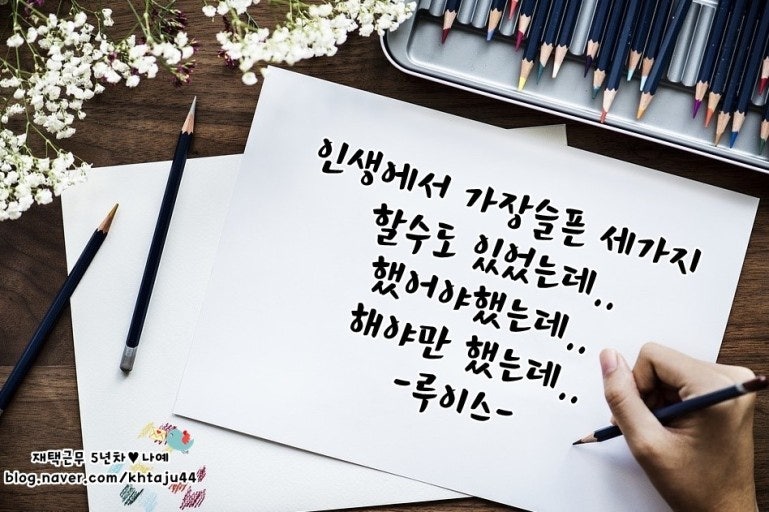 인생에서 가장슬픈 세가지
할수도 있었는데..
했어야했는데..
해야만 했는데..
-루이스-
재택근무 5년차♥나예
blog.naver.com/khtaju44